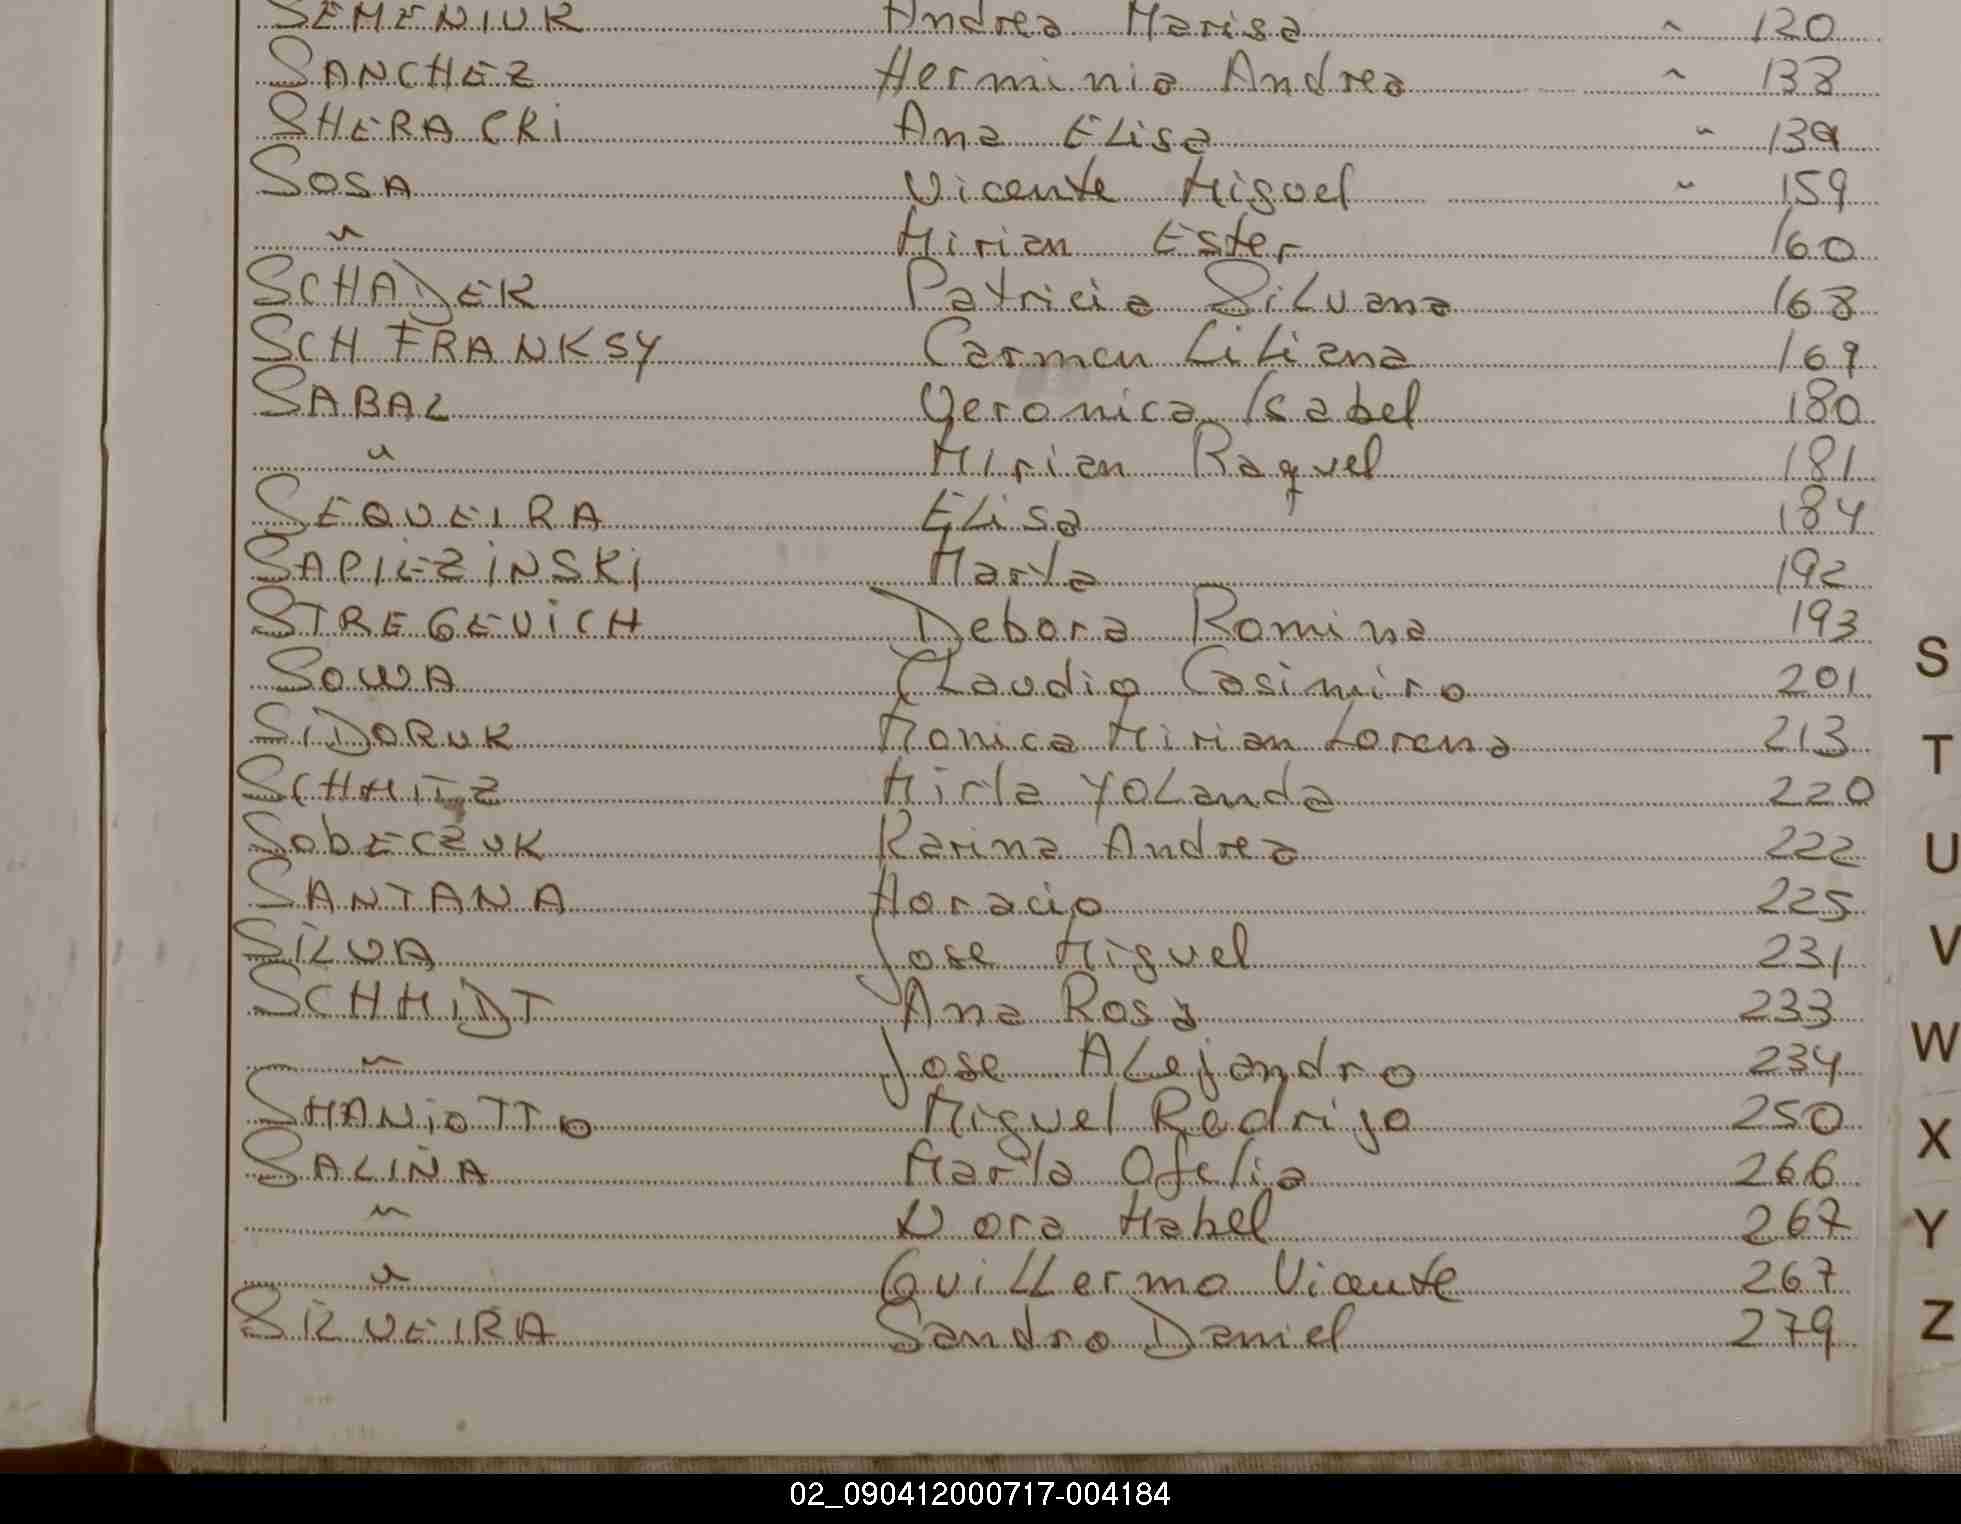 SEMENIUK Andrea Marisa " 120
SANCHEZ Herminio Andrea " 138
SHERACKI Ana Elisa " 139
SOSA Vicente Miguel " 159
" Mirian Ester 160
SCHADEK Patricia Silvana 168
SCHFRANKSY Carmen Liliana 169
SABAL Veronica Isabel 180
" Mirian Raquel 181
SEQUEIRA Elisa 184
SAPIEZINSKI Marta 192
STREGEVICH Debora Romina 193
SOWA Claudio Casimiro 201
SIDORUK Monica Mirian Lorena 213
SCHMITZ Mirta Yolanda 220
SobECZUK Karina Andrea 222
SANTANA Horacio 225
SILVA Jose Miguel 231
SCHMIDT Ana Rosa 233
" Jose Alejandro 234
SMANIOTTO Miguel Rodrigo 250
SALINA Marta Ofelia 266
" Nora Mabel 267
" Guillermo Vicente 267
SILVEIRA Sandro Daniel 279
S
T
U
V
W
X
Y
Z
02_090412000717-004184